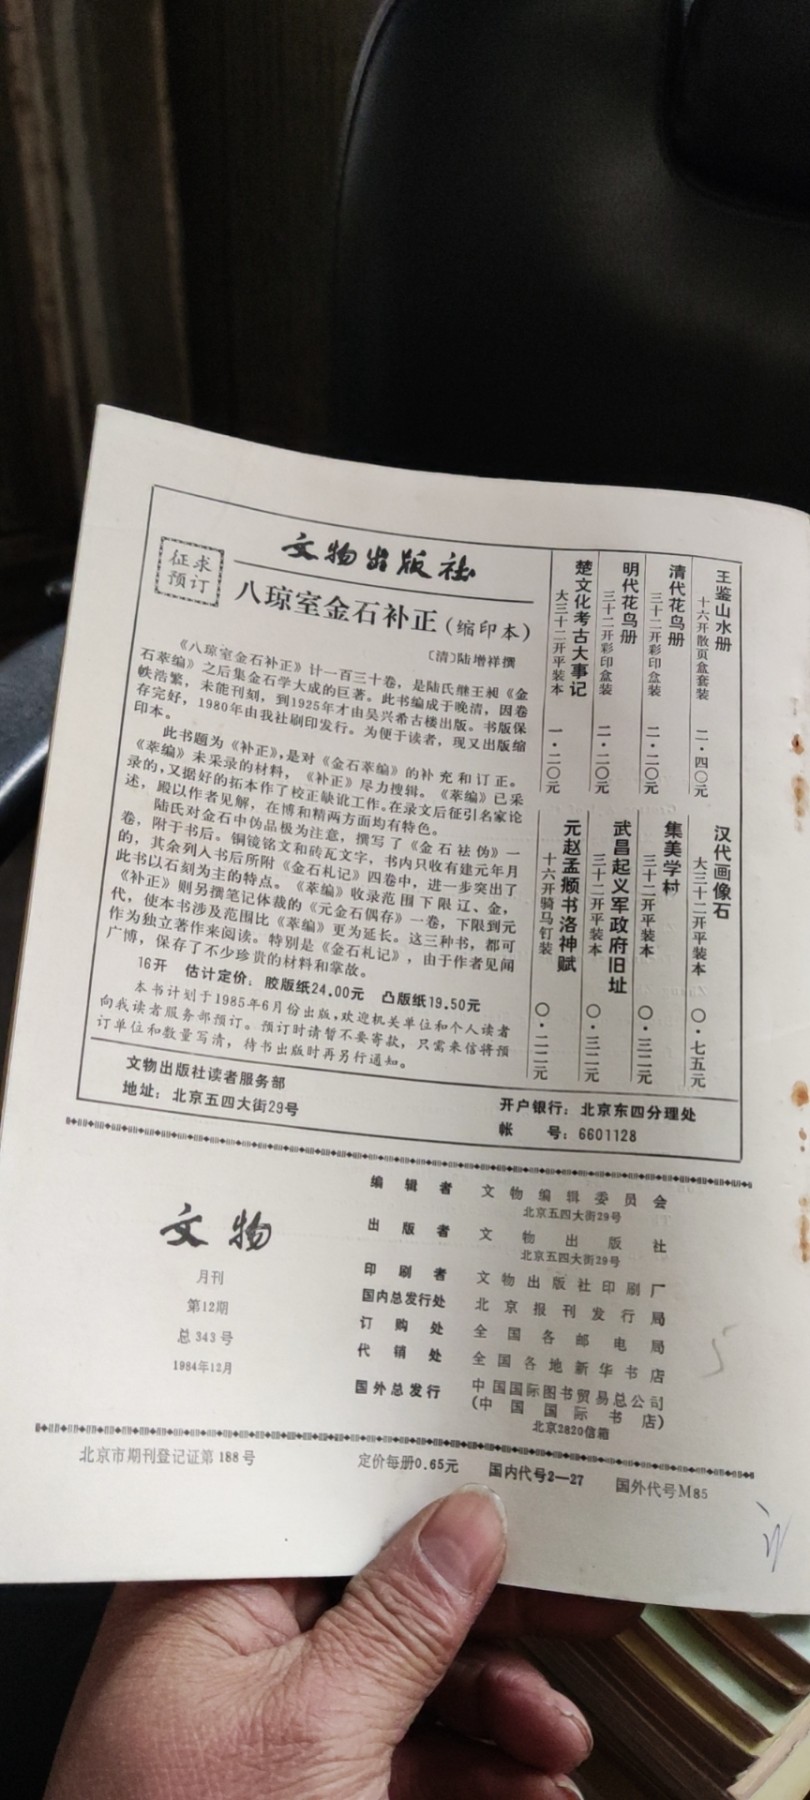 征求
预订
文物出版社
八琼室金石补正(缩印本)
〔清〕陆增祥撰
《八琼室金石补正》计一百三十卷，是陆氏继王昶《金
石萃编》之后集金石学大成的巨著。此书编成于晚清，因卷
帙浩繁，未能刊刻，到1925年才由吴兴希古楼出版。书版保
存完好，1980年由我社刷印发行。为便于读者，现又出版缩
印本。
此书题为《补正》，是对《金石萃编》的补充和订正。
《萃编》未采录的材料，《补正》尽力搜辑。《萃编》已采
录的，又据好的拓本作了校正缺讹工作。在录文后征引名家论
述，殿以作者见解，在博和精两方面均有特色。
陆氏对金石中伪品极为注意，撰写了《金石祛伪》一
卷，附于书后。铜镜铭文和砖瓦文字，书内只收有建元年月
的，其余列入书后所附《金石札记》四卷中，进一步突出了
此书以石刻为主的特点。《萃编》收录范围下限辽、金，
《补正》则另撰笔记体裁的《元金石偶存》一卷，下限到元
代，使本书涉及范围比《萃编》更为延长。这三种书，都可
作为独立著作来阅读。特别是《金石札记》，由于作者见闻
广博，保存了不少珍贵的材料和掌故。
16开 估计定价：胶版纸24.00元 凸版纸19.50元
本书计划于1985年6月份出版，欢迎机关单位和个人读者
向我读者服务部预订。预订时请暂不要寄款，只需来信将预
订单位和数量写清，待书出版时再另行通知。
王鉴山水册
十六开散页盒套装 二·四〇元
清代花鸟册
三十二开彩印盒装 二·二〇元
明代花鸟册
三十二开彩印盒装 二·二〇元
楚文化考古大事记
大三十二开平装本 一·二〇元
汉代画像石
大三十二开平装本 〇·七五元
集美学村
三十二开平装本 〇·三二元
武昌起义军政府旧址
三十二开平装本 〇·三二元
元赵孟頫书洛神赋
十六开骑马钉装 〇·二二元
文物出版社读者服务部
地址：北京五四大街29号
开户银行：北京东四分理处
帐 号：6601128
文物
月刊
第12期
总343号
1984年12月
编辑者 文物编辑委员会
北京五四大街29号
出版者 文物出版社
北京五四大街29号
印刷者 文物出版社印刷厂
国内总发行处 北京报刊发行局
订购处 全国各邮电局
代销处 全国各地新华书店
国外总发行 中国国际图书贸易总公司
(中国国际书店)
北京2820信箱
北京市期刊登记证第188号 定价每册0.65元 国内代号2—27 国外代号M85